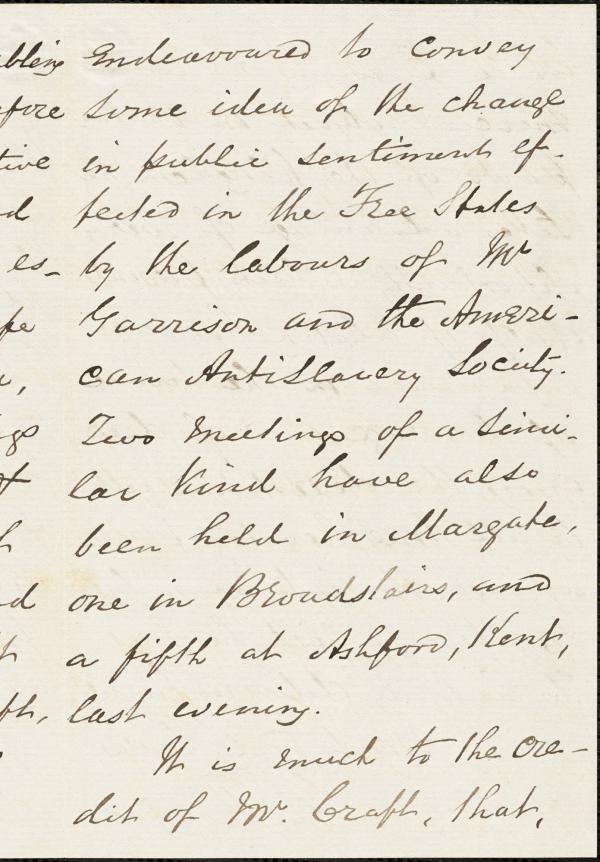 Endeavoured to convey
some idea of the change
in public sentiment ef-
fected in the Free States
by the labours of Mr
Garrison and the Ameri-
can AntiSlavery Society.
Two meetings of a simi-
lar kind have also
been held in Margate,
one in Broadstairs, and
a fifth at Ashford, Kent,
last evening.
It is much to the cre-
dit of Mr. Craft, that,